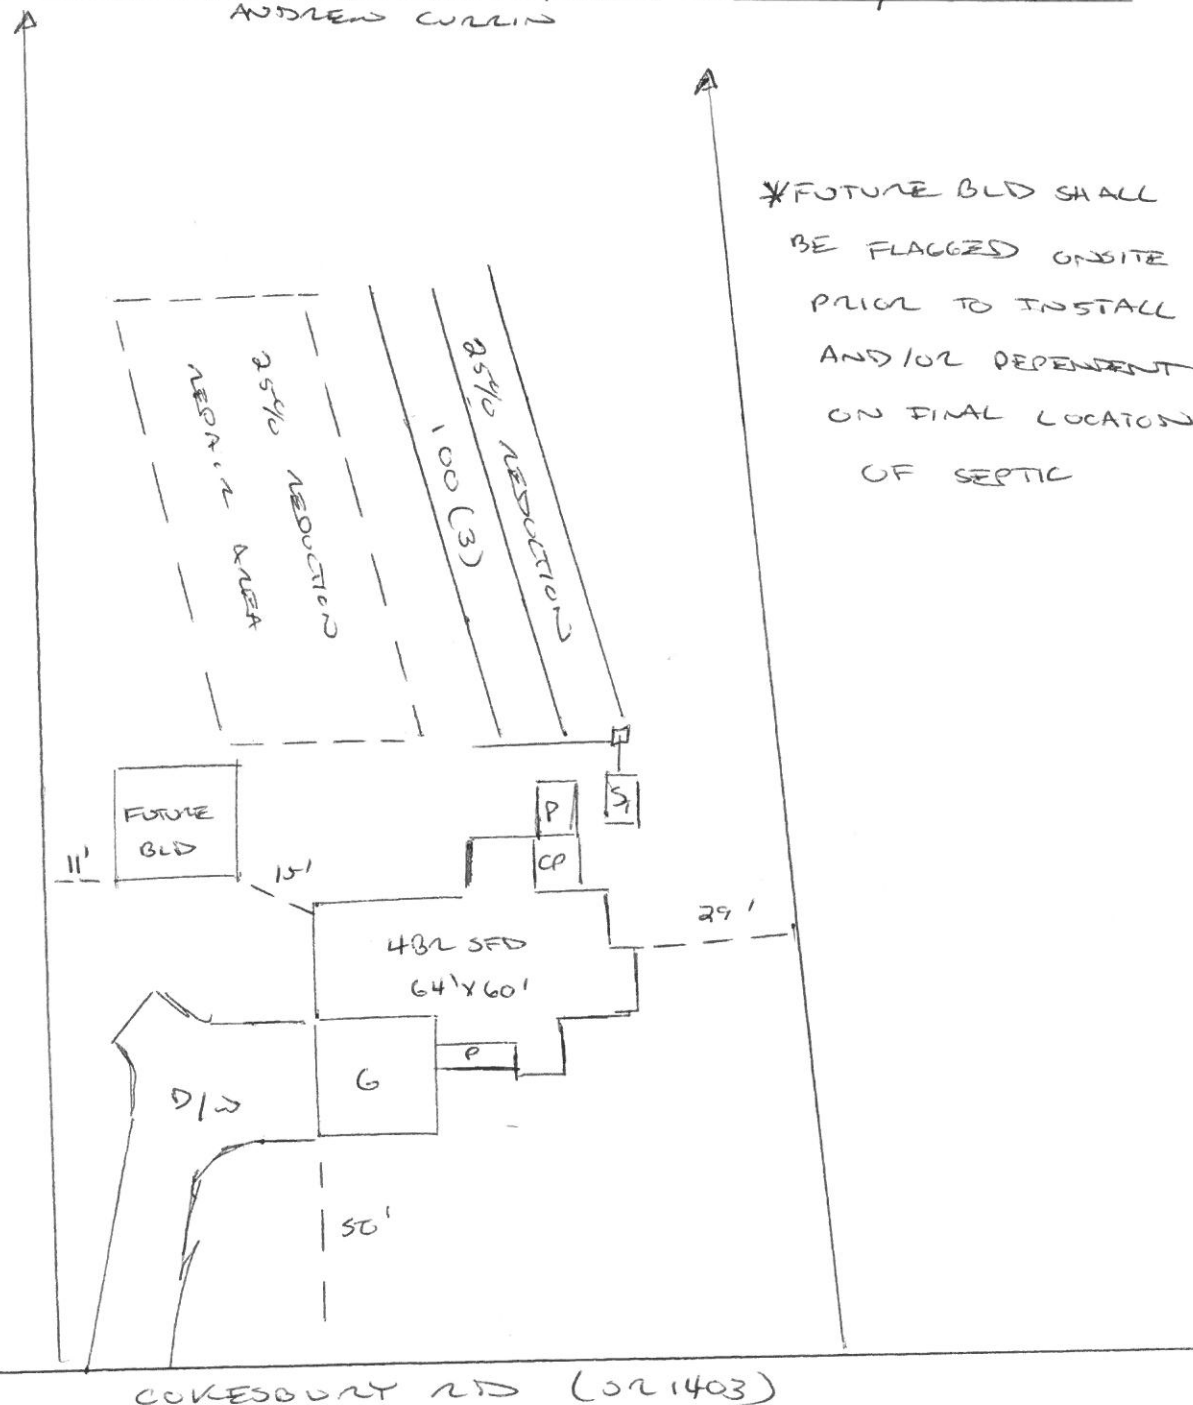 ANDREW CURRIN
*FUTURE BLD SHALL
BE FLAGGED ONSITE
PRIOR TO INSTALL
AND/OR DEPENDENT
ON FINAL LOCATON
OF SEPTIC
25% REDUCTION
REPAIR AREA
100 (3)
25% REDUCTION
FUTURE
BLD
11'
15'
P
ST
CP
4BR SFD
64'X60'
29'
P
G
D/W
50'
COKESBURY RD (SR 1403)